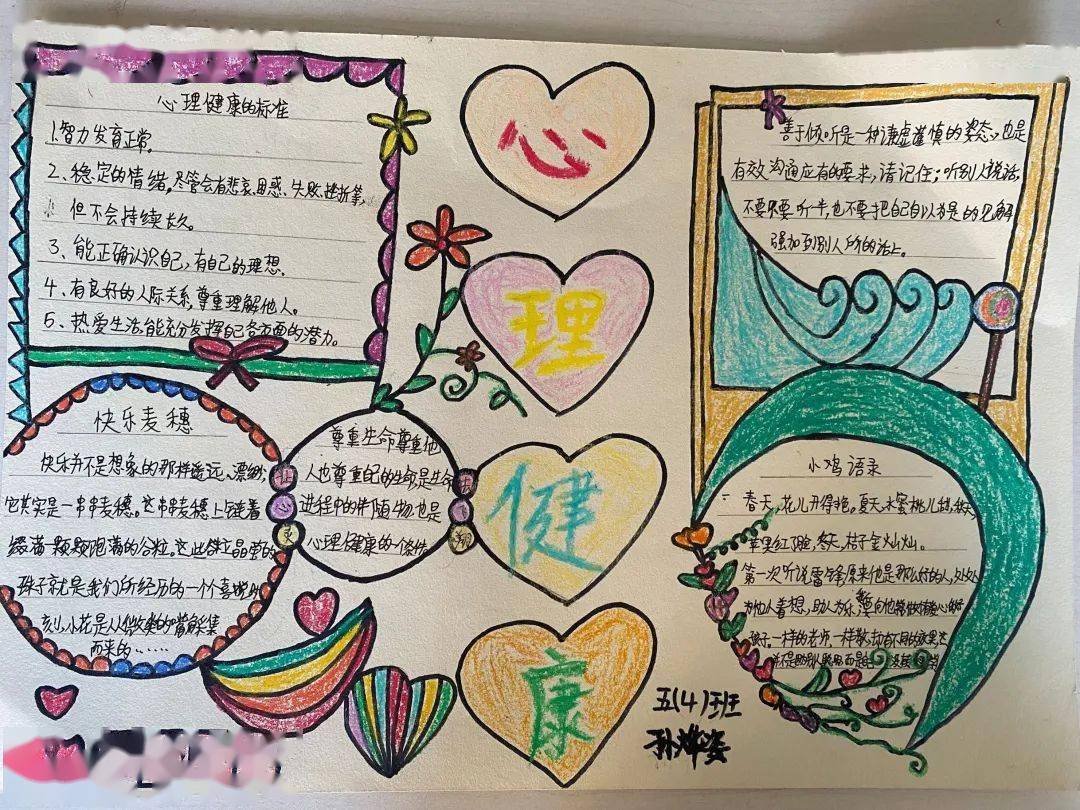 心理健康的标准
1.智力发育正常。
2、稳定的情绪,尽管会有悲哀、困惑、失败、挫折等,
但不会持续长久。
3、能正确认识自己,有自己的理想。
4、有良好的人际关系,尊重理解他人。
5、热爱生活,能充分发挥自己各方面的潜力。
心
理
健
康
善于倾听是一种谦虚谨慎的姿态,也是
有效沟通应有的要求,请记住;听别人说话,
不要只要听半,也不要把自己自以为是的见解
强加到别人所的话上。
快乐麦穗
快乐并不是想象的那样遥远、漂缈,
它其实是一串串麦穗。这串串麦穗上缝着
缀满一颗颗饱满的谷粒。这些
珠子就是我们所经历的一个喜悦
刻。小花是从微类的嘴解集
而来的……
心
灵
尊重生命尊重他
人也尊重自己的生命,是生命
进程中的伴随物,也是
心理健康的一个条件。
小鸡语录
春天,花儿开得艳。夏天,水蜜桃儿甜,秋天,
苹果红,冬天,桔子金灿灿。
第一次听说雷锋,原来他是那么好的人,处处
为他人着想,助人为乐,向他
孩子,一样的老师,一样教,却有不同的效果
五(4)班
孙烨姿